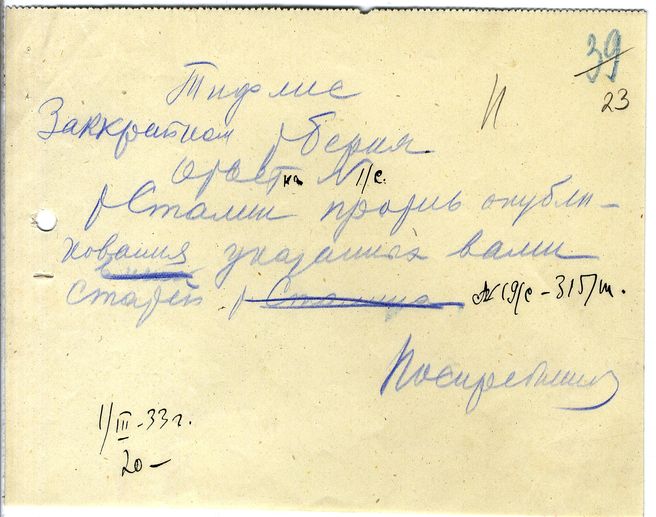 39
23
П
Тифлис
Заккрайком т Берия
Ответ на № 1/с.
т Сталин против опубли-
кования указанных вами
статей т Сталина. № 19/с - 315/ш.
Поскребышев
1/III - 33 г.
20-